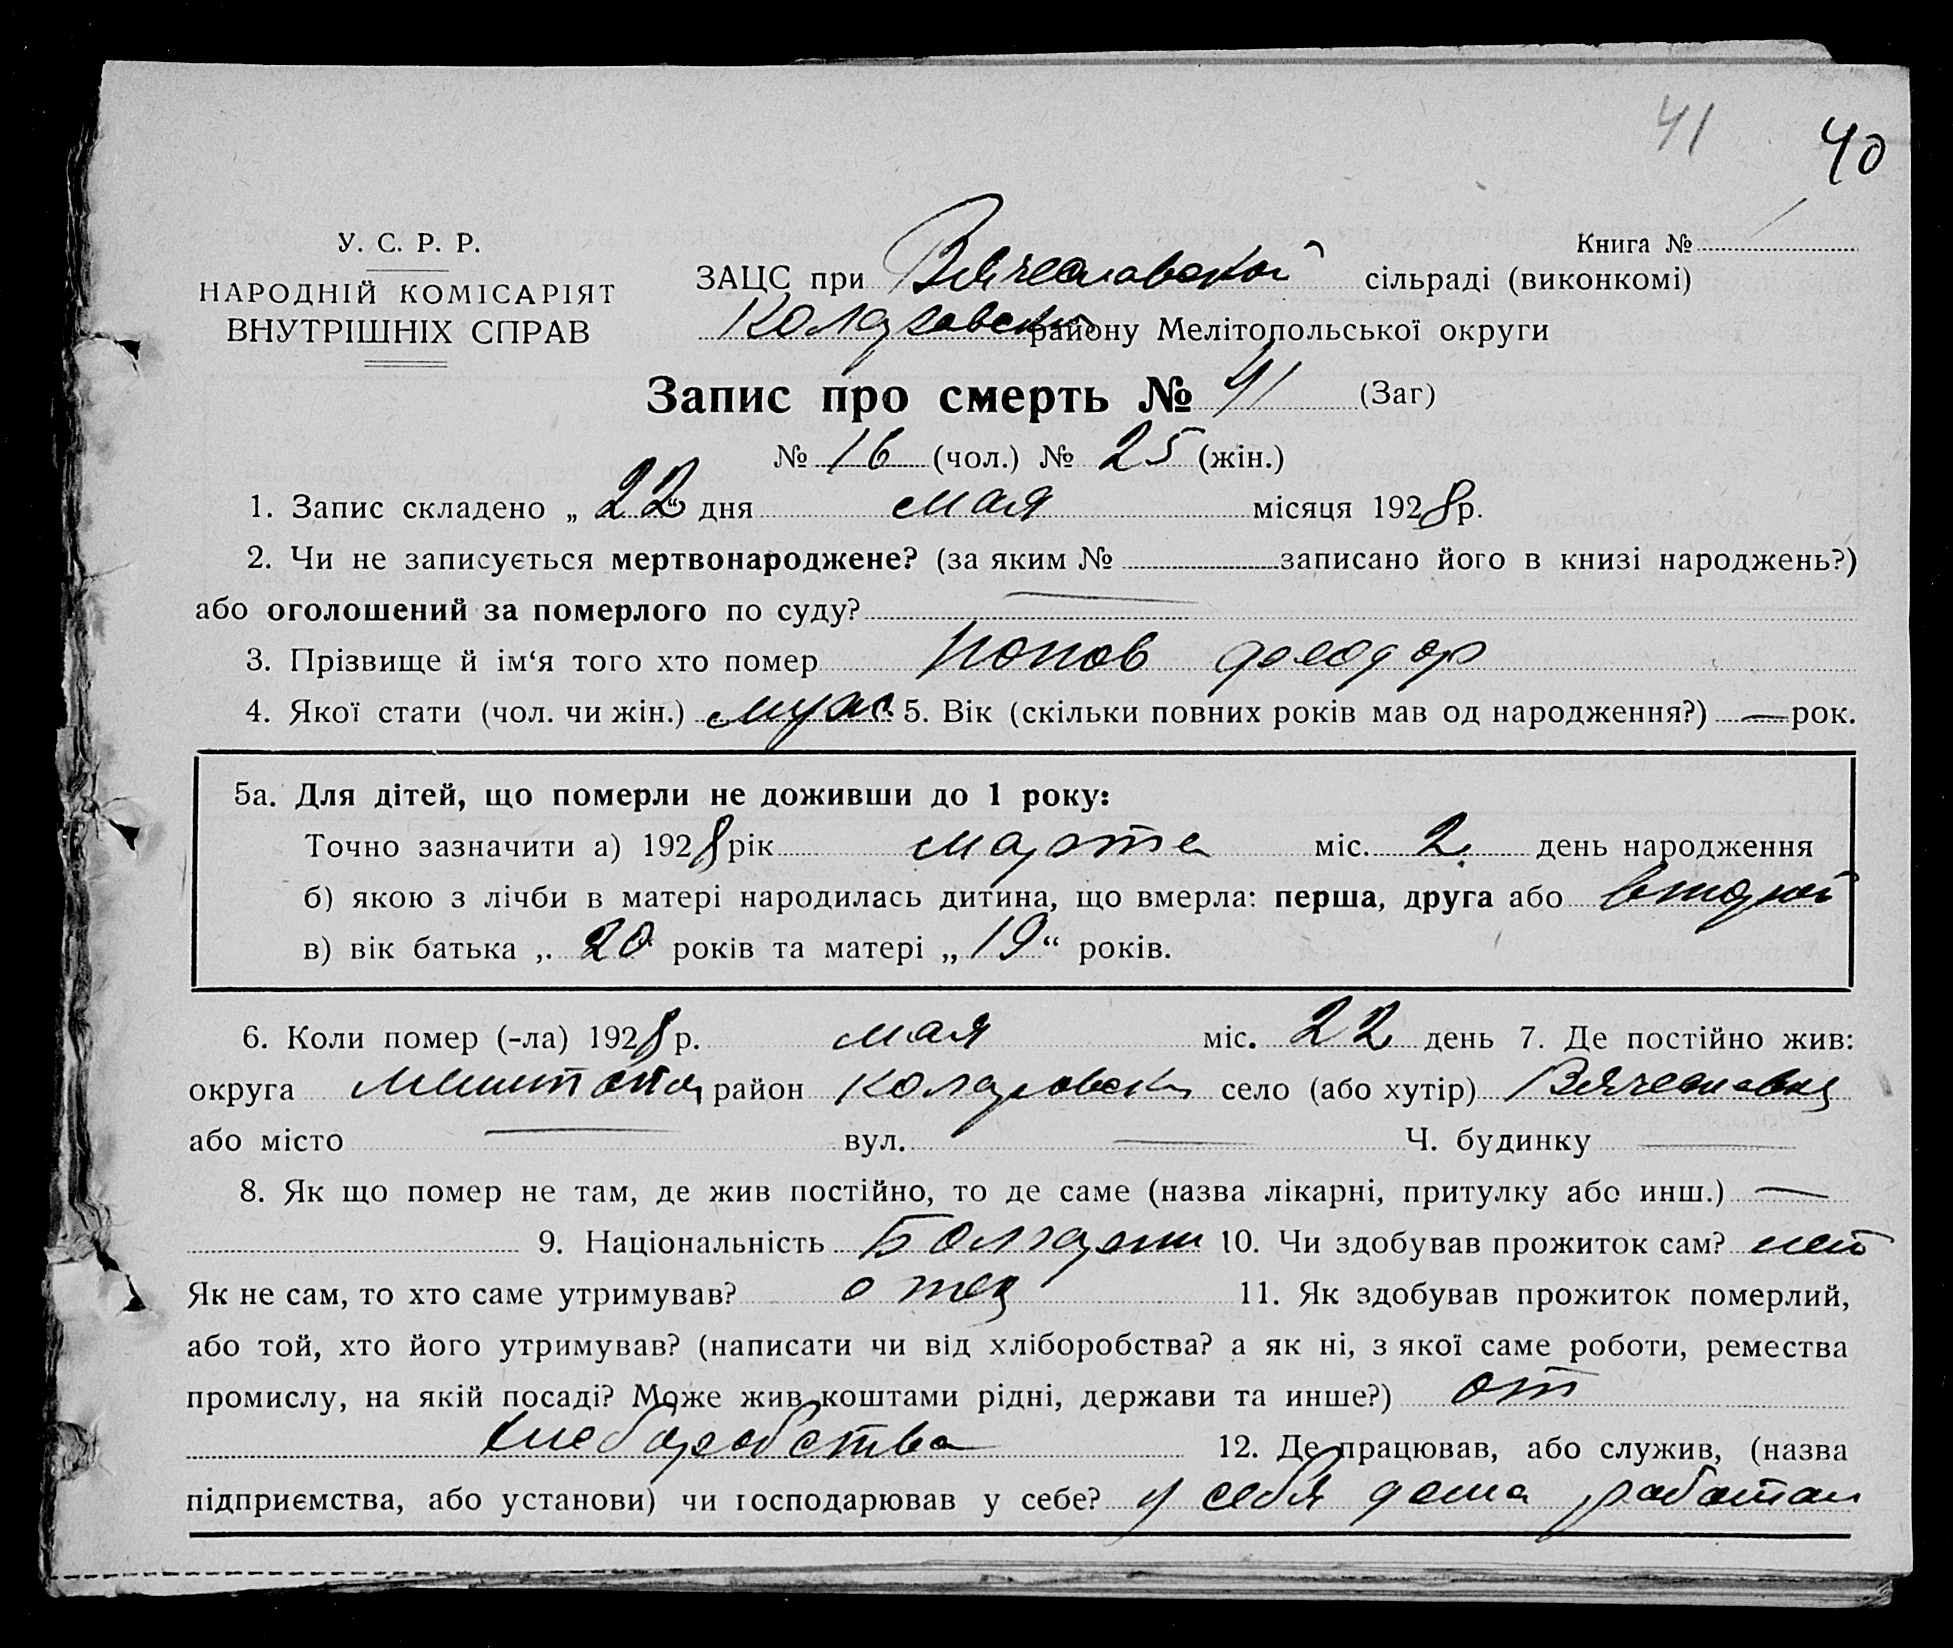 41
40
У. С. Р. Р.
НАРОДНІЙ КОМІСАРІЯТ
ВНУТРІШНІХ СПРАВ
Книга №
ЗАЦС при Вячеславской сільраді (виконкомі)
Коларовски району Мелітопольської округи
Запис про смерть № 41 (Заг)
№ 16 (чол.) № 25 (жін.)
1. Запис складено „ 22 “ дня мая місяця 1928 р.
2. Чи не записується мертвонароджене? (за яким № записано його в книзі народжень?)
або оголошений за померлого по суду? —
3. Прізвище й ім‘я того хто помер Попов Феодор
4. Якої стати (чол. чи жін.) муж. 5. Вік (скільки повних років мав од народження?) — рок.
5а. Для дітей, що померли не доживши до 1 року:
Точно зазначити а) 1928 рік марта міс. 2 день народження
б) якою з лічби в матері народилась дитина, що вмерла: перша, друга або второй
в) вік батька „ 20 років та матері „ 19 “ років.
6. Коли помер (-ла) 1928 р. мая міс. 22 день 7. Де постійно жив:
округа район Коларовск село (або хутір) Вячеславка
або місто — вул. — Ч. будинку —
8. Як що помер не там, де жив постійно, то де саме (назва лікарні, притулку або инш.) —
9. Національність Болгарин 10. Чи здобував прожиток сам? нет
Як не сам, то хто саме утримував? отец 11. Як здобував прожиток померлий,
або той, хто його утримував? (написати чи від хліборобства? а як ні, з якої саме роботи, ремества
промислу, на якій посаді? Може жив коштами рідні, держави та инше?) от
хлеборобства 12. Де працював, або служив, (назва
підприємства, або установи) чи господарював у себе? у себя дома работал